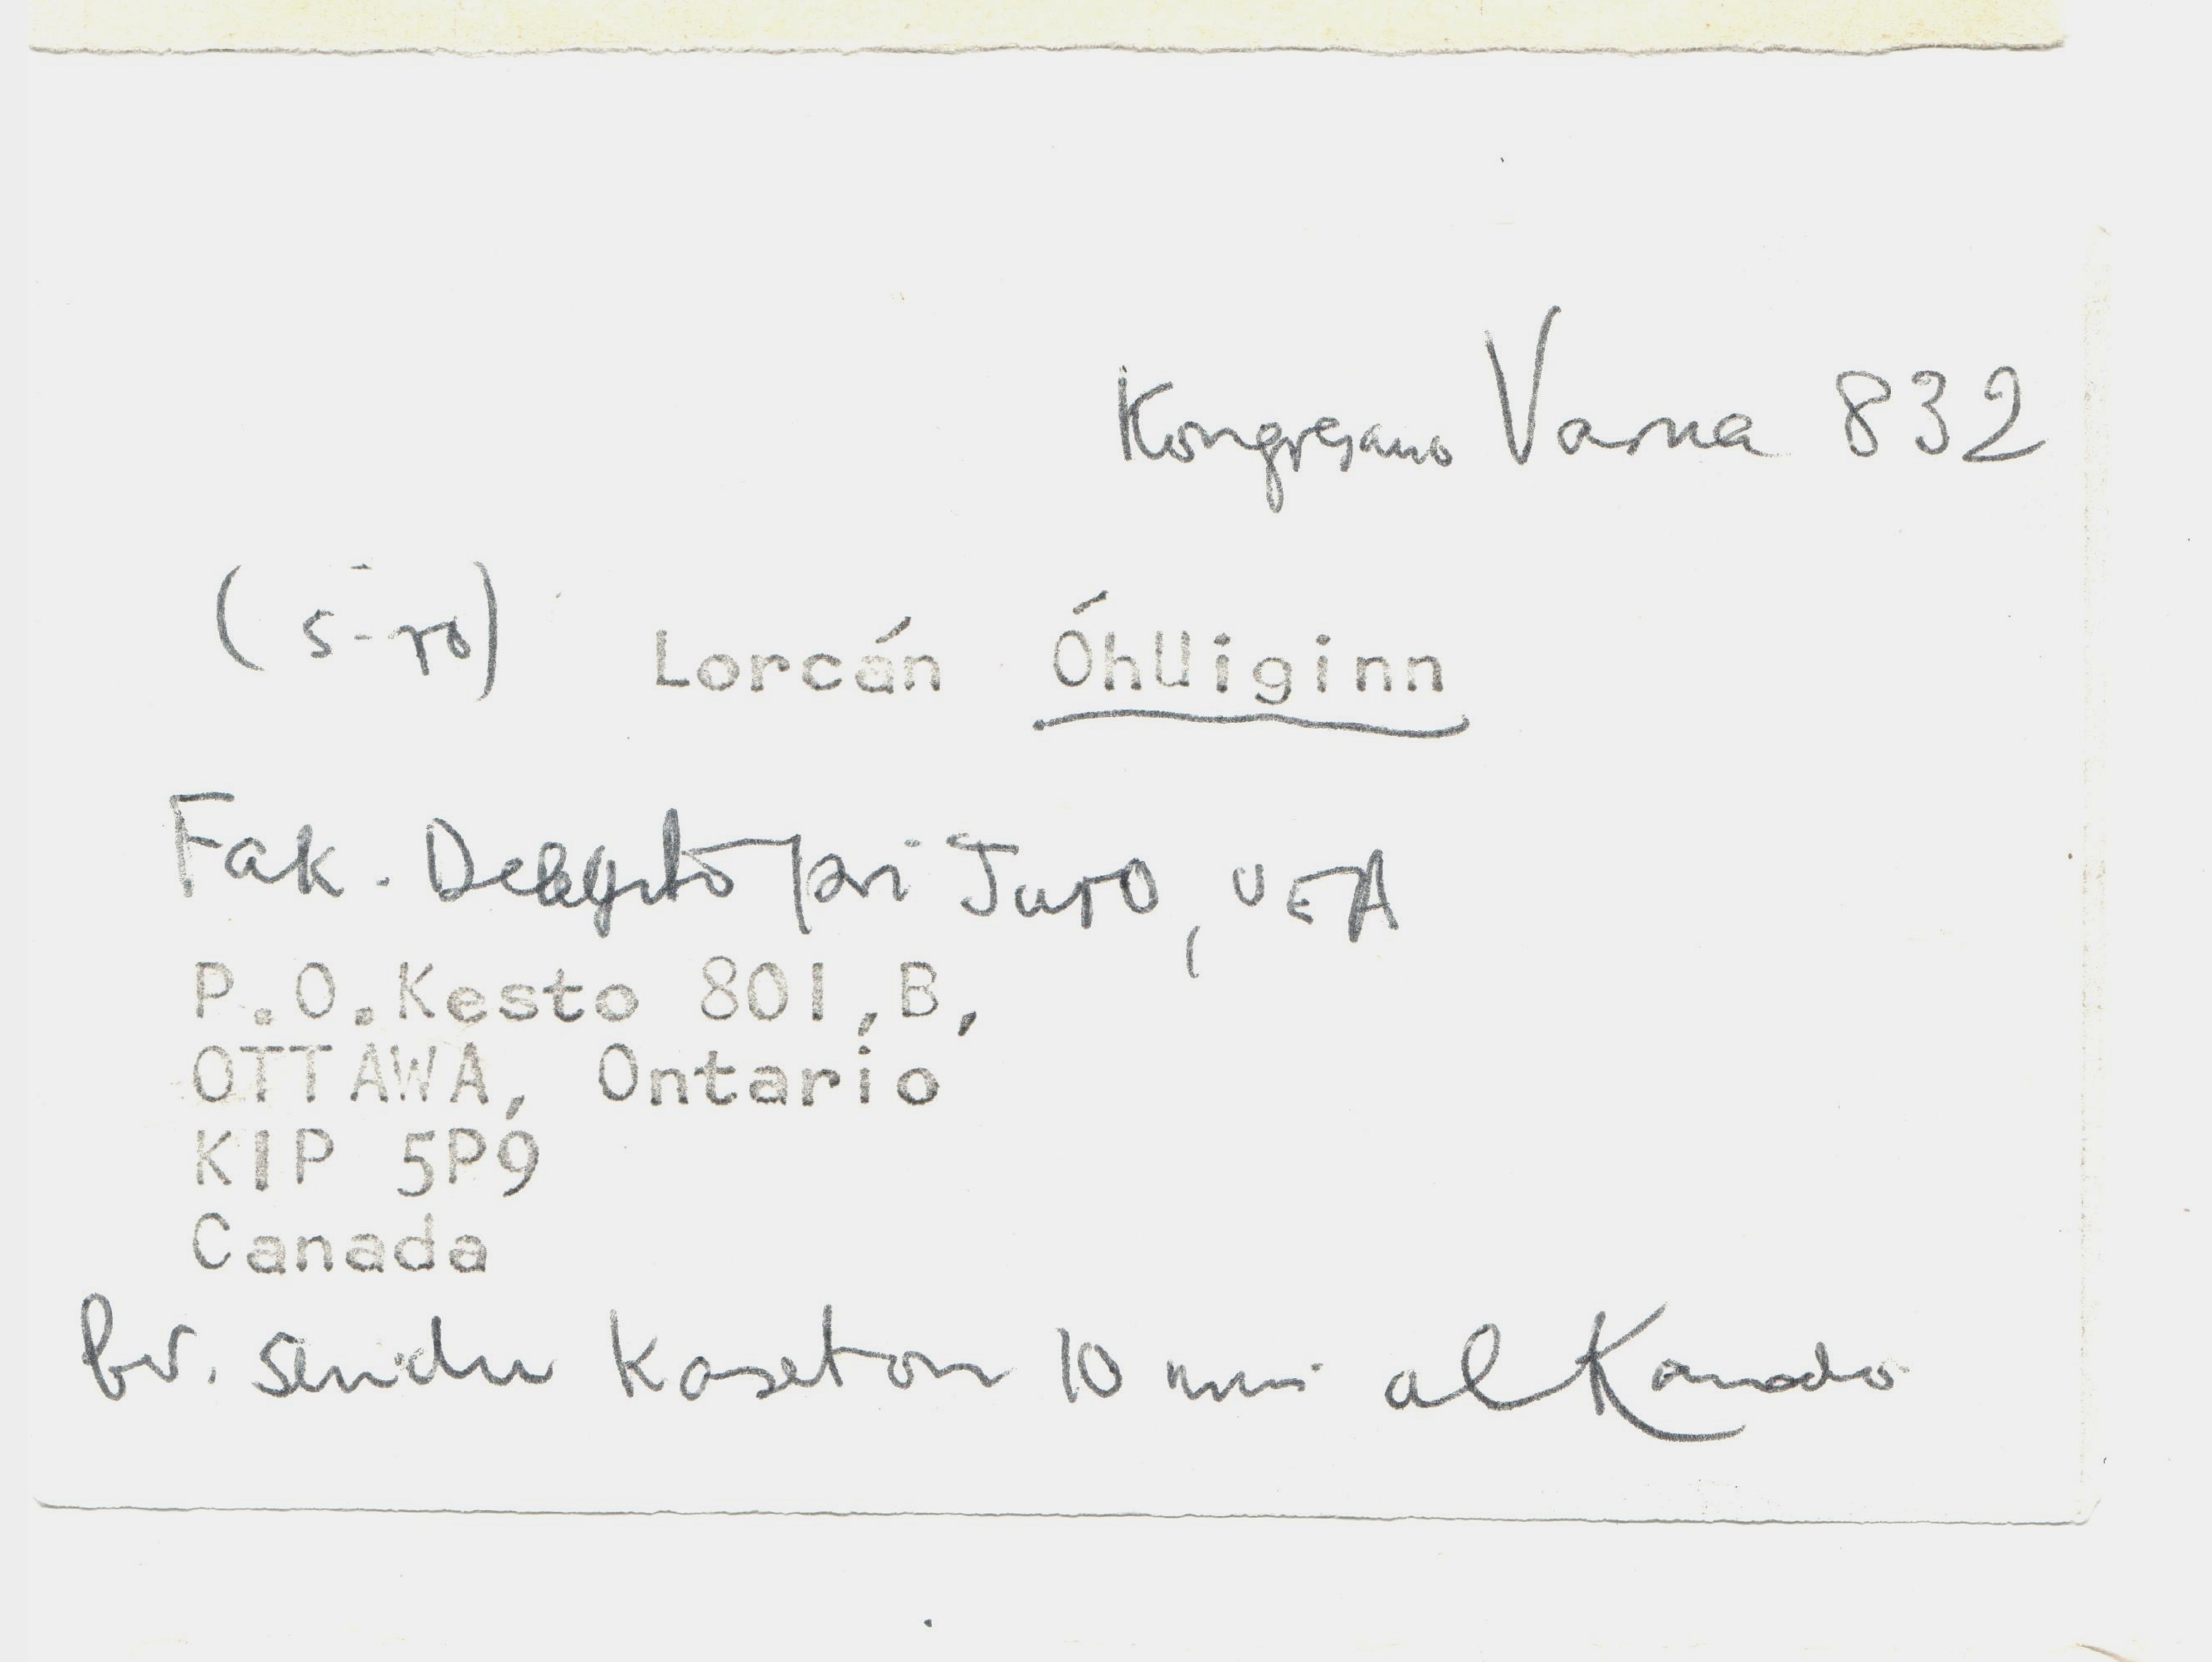 Kongresano Varna 832
(s-ro) Lorcán ÓhUiginn
Fak. Delegito pri Juro, UEA
P.O.Kesto 801,B,
OTTAWA, Ontario
K1P 5P9
Canada
bv. sendu kaseton 10 al Kanado